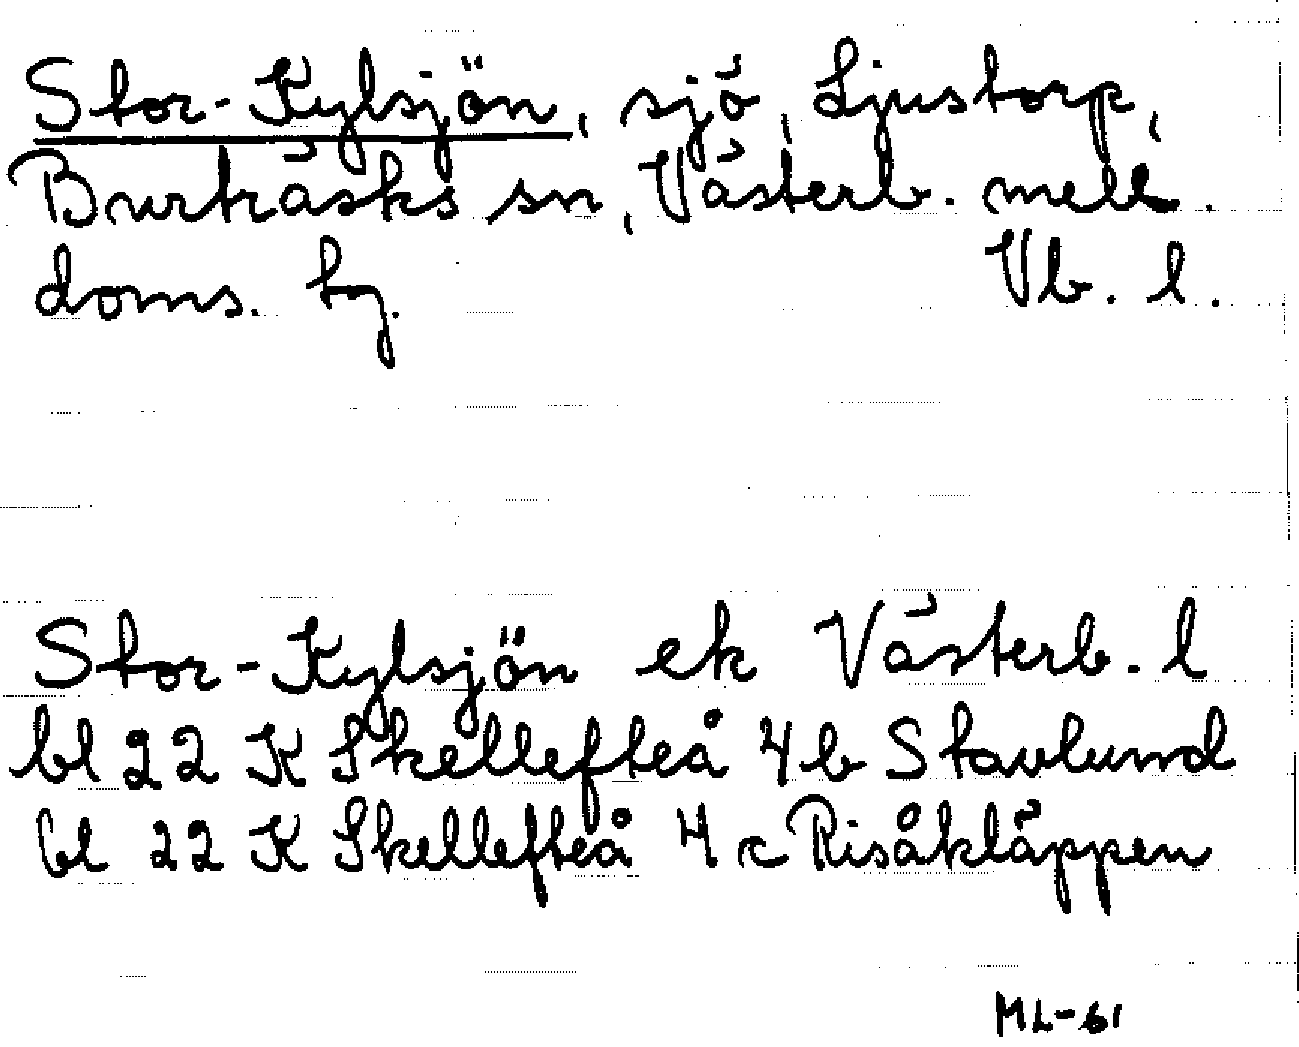 Stor-Kylsjön, sjö, Ljustorp,
Burträsks sn, Västerb. mell.
doms. tg. Vb. l.
Stor-Kylsjön ek Västerb. l
bl 22 K Skellefteå 4b Stavlund
bl 22 K Skellefteå 4c Risåkläppen
ML-61